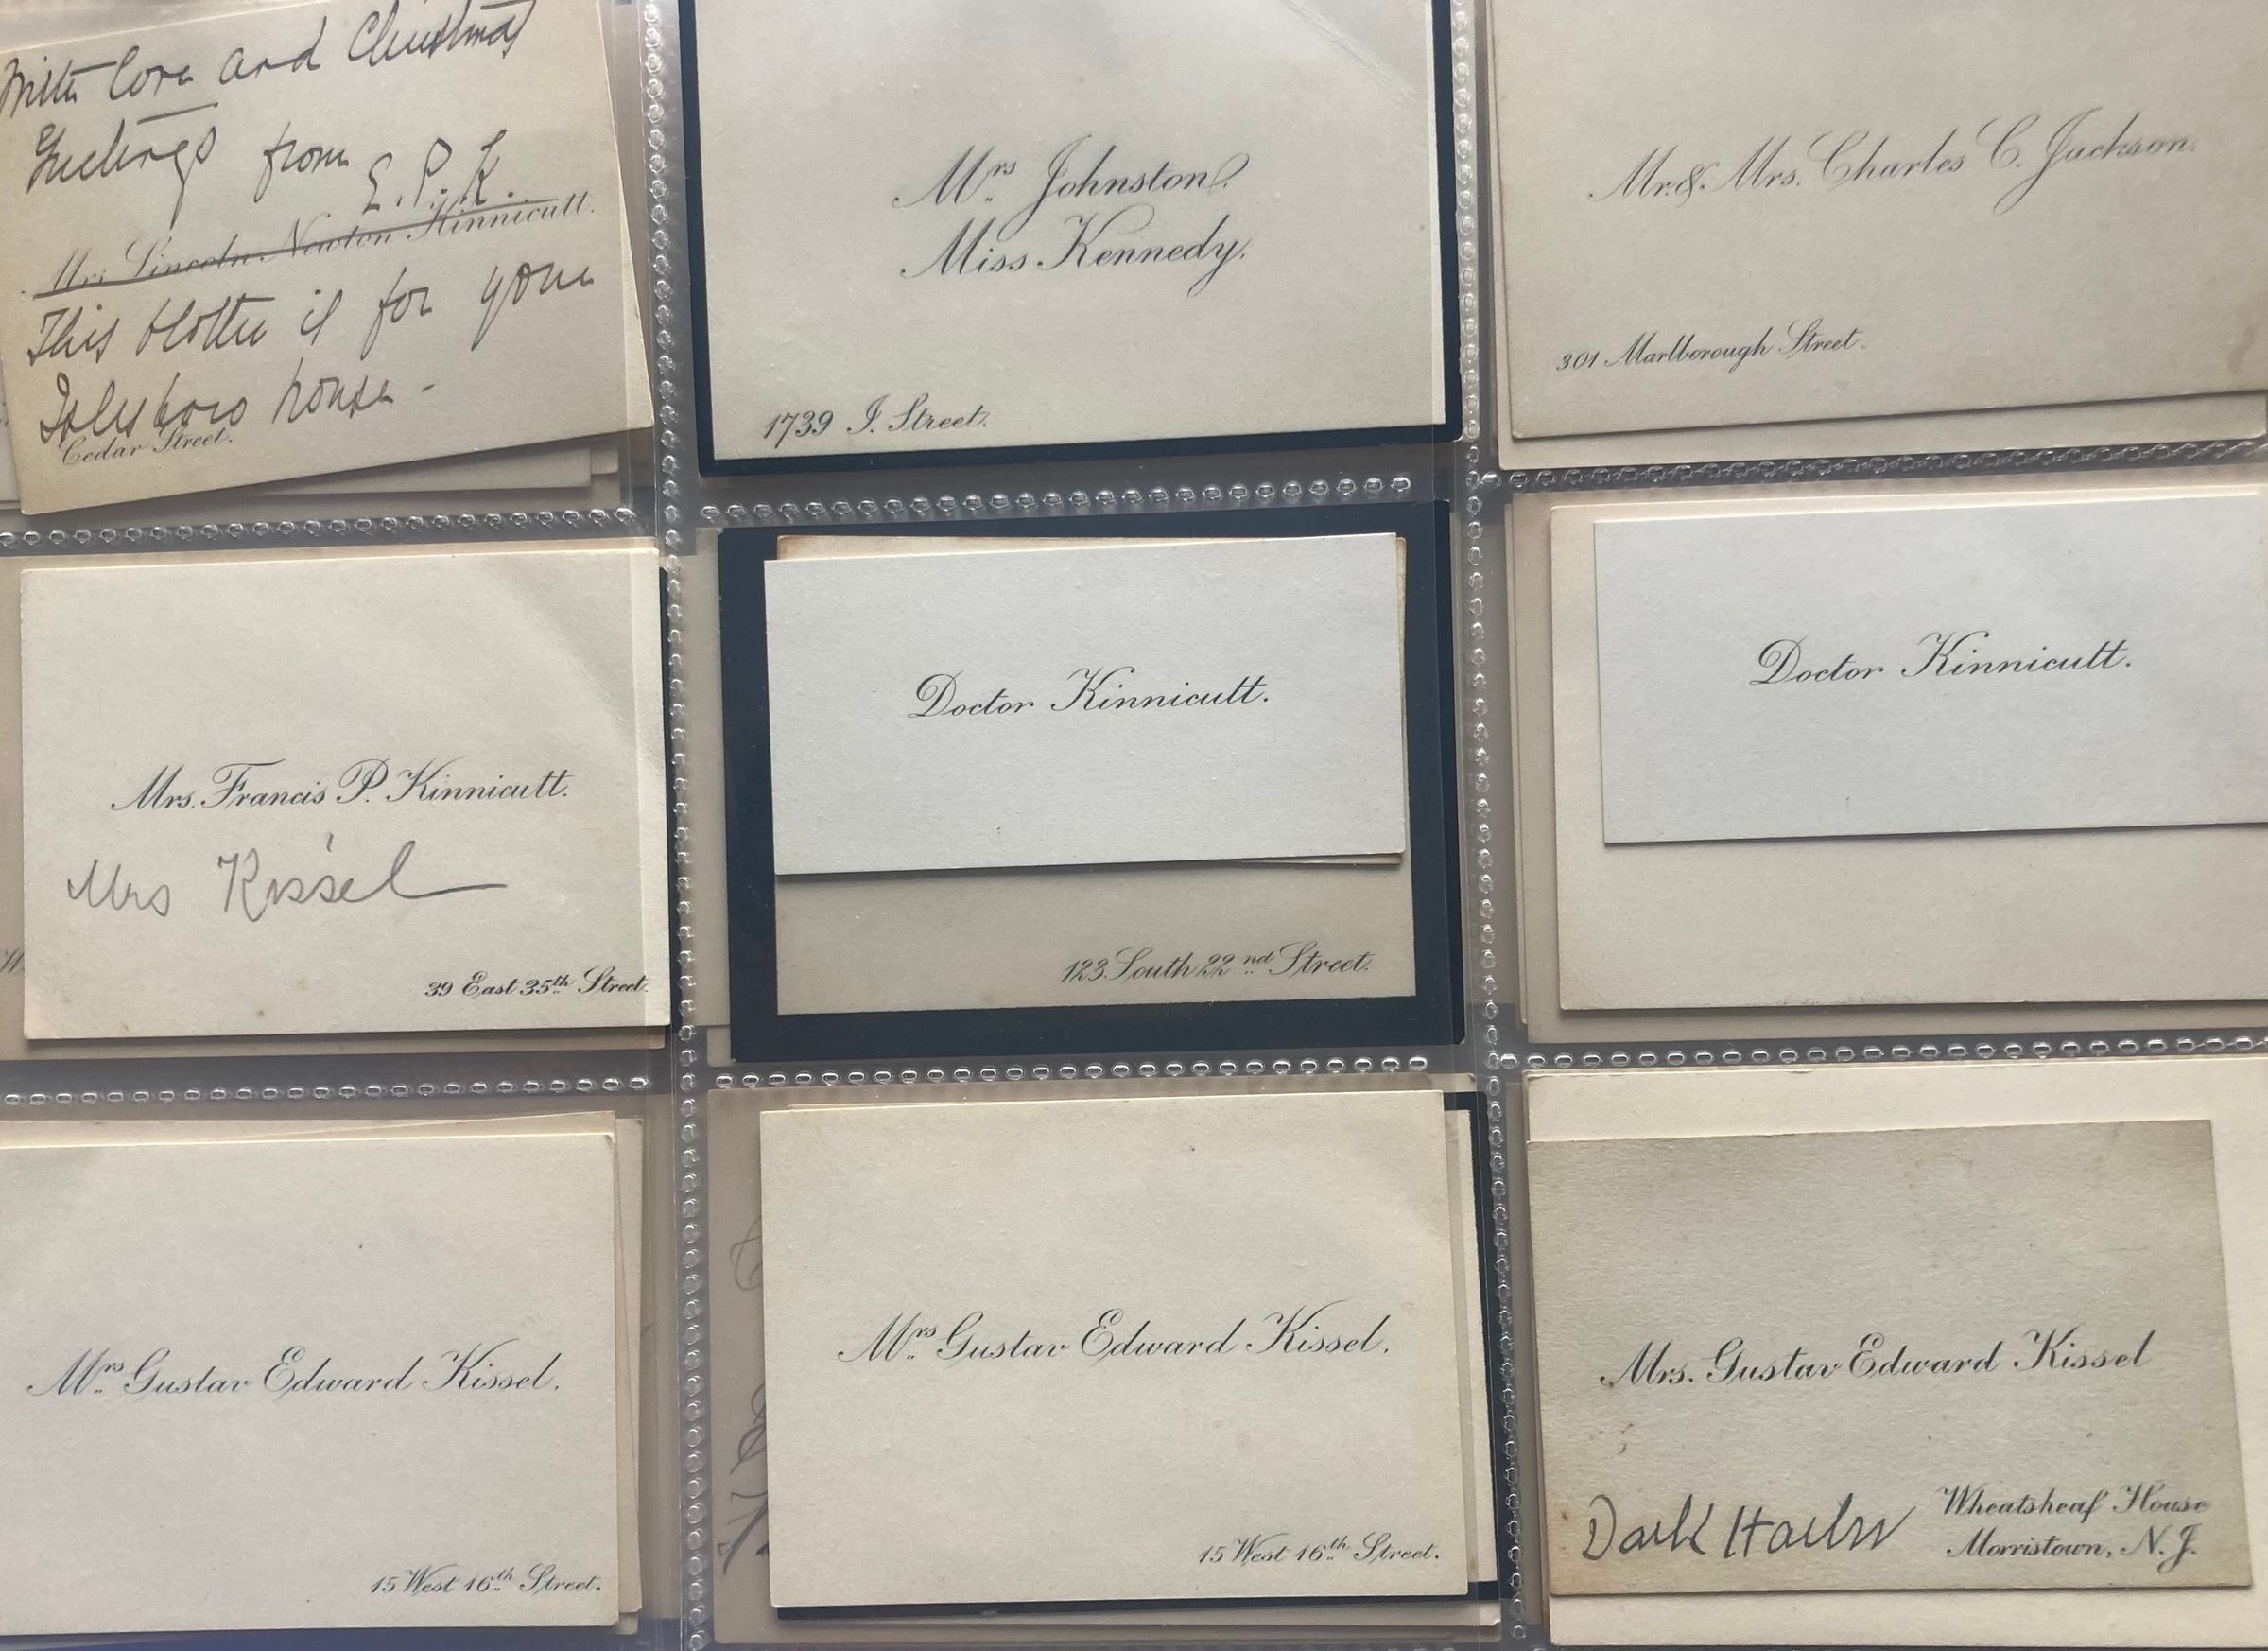 With love and Christmas
Greetings from
E. P. K.
Mrs. Lincoln Newton Kinnicutt.
This blotter is for your
Islesboro house -
Cedar Street.
Mrs Johnston.
Miss Kennedy.
1739 I. Street.
Mr. & Mrs. Charles C. Jackson.
301 Marlborough Street.
Mrs. Francis P. Kinnicutt.
Mrs Kissel
39 East 35th Street.
Doctor Kinnicutt.
123 South 22nd Street.
Doctor Kinnicutt.
Mrs Gustav Edward Kissel.
15 West 16th Street.
Mrs Gustav Edward Kissel.
15 West 16th Street.
Mrs. Gustav Edward Kissel
Dark Harbor
Wheatsheaf House
Morristown, N. J.